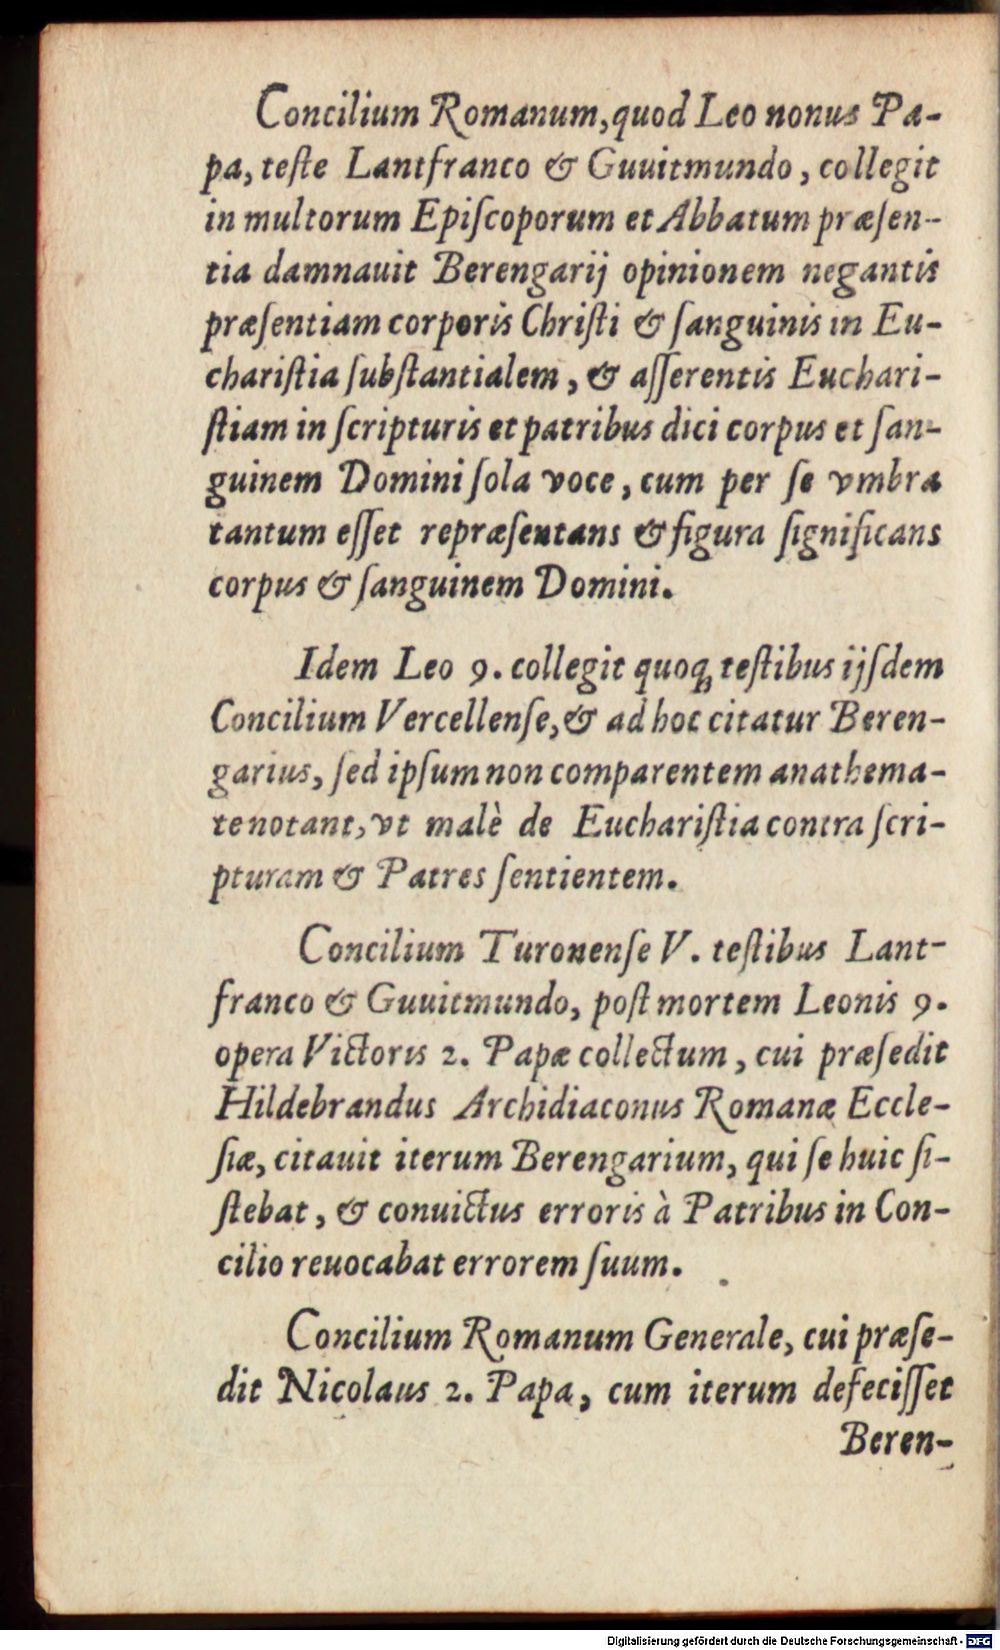 Concilium Romanum, quod Leo nonus Pa-
pa, teſte Lantfranco & Guuitmundo, collegit
in multorum Epiſcoporum et Abbatum præſen-
tia damnauit Berengarij opinionem negantis
præſentiam corporis Chriſti & ſanguinis in Eu-
chariſtia ſubſtantialem, & aſſerentis Euchari-
ſtiam in ſcripturis et patribus dici corpus et ſan-
guinem Domini ſola voce, cum per ſe vmbra
tantum eſſet repræſentans & figura ſignificans
corpus & ſanguinem Domini.
Idem Leo 9. collegit quoq́₃ teſtibus ijſdem
Concilium Vercellenſe, & ad hoc citatur Beren-
garius, ſed ipſum non comparentem anathema-
te notant, vt malè de Euchariſtia contra ſcri-
pturam & Patres ſentientem.
Concilium Turonenſe V. teſtibus Lant-
franco & Guuitmundo, poſt mortem Leonis 9.
opera Victoris 2. Papæ collectum, cui præſedit
Hildebrandus Archidiaconus Romanæ Eccle-
ſiæ, citauit iterum Berengarium, qui ſe huic ſi-
ſtebat, & conuictus erroris à Patribus in Con-
cilio reuocabat errorem ſuum.
Concilium Romanum Generale, cui præſe-
dit Nicolaus 2. Papa, cum iterum defeciſſet
Beren-
Digitalisierung gefördert durch die Deutsche Forschungsgemeinschaft - DFG